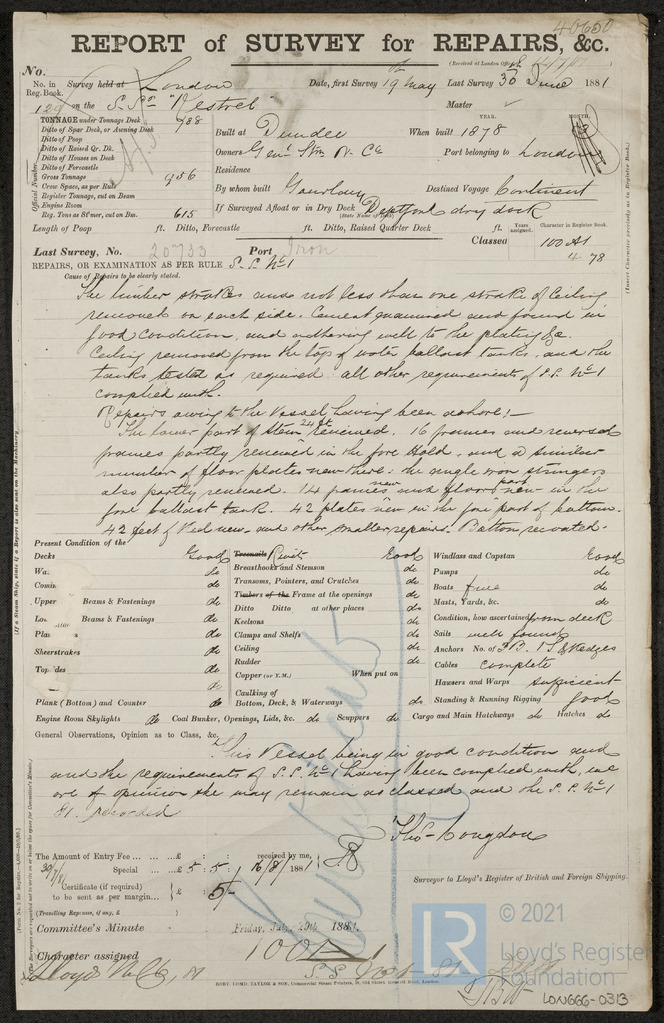 40650
REPORT of SURVEY for REPAIRS, &c.
(Received at London Office
No.
No. in Reg. Book. Survey held at London Date, first Survey 19th May Last Survey 30 June 1881
on the S. Sr "Kestrel" Master
TONNAGE under Tonnage Deck 788
Ditto of Spar Deck, or Awning Deck
Ditto of Poop
Ditto of Raised Qr. Dk.
Ditto of Houses on Deck
Ditto of Forecastle
Gross Tonnage 956
Crew Space, as per Rule
Register Tonnage, cut on Beam
Engine Room
Reg. Tons as Stmer, cut on Bm. 615
Official Number
Built at Dundee When built 1878
YEAR. MONTH.
Owners Genl Stm N. Co Port belonging to London
Residence
By whom built Gourlay Destined Voyage Continent
If Surveyed Afloat or in Dry Dock Deptford dry dock
(State Name of Dock)
Length of Poop ft. Ditto, Forecastle ft. Ditto, Raised Quarter Deck ft.
Years assigned. Character in Register Book.
Classed 100 A1
4 78
Last Survey, No. 20733 Port Iron
REPAIRS, OR EXAMINATION AS PER RULE S. S. No 1
Cause of Repairs to be clearly stated.
The limber strakes and not less than one strake of Ceiling
removed on each side. Cement examined and found in
good condition, and adhering well to the plating &c.
Ceiling removed from the top of water ballast tanks, and the
tanks tested as required. all other requirements of S.S. No 1
complied with.
Repairs owing to the Vessel having been ashore:-
The lower part of Stem 24 ft renewed. 16 frames and reversed
frames partly renewed in the fore Hold, and a similar
number of floor plates new there. the angle iron stringers
also partly renewed. 14 frames new and floors part new in the
fore ballast tank. 42 plates new in the fore part of bottom.
42 feet of Keel new and other smaller repairs. Bottom recoated.
Present Condition of the
Decks Good
do
do
Upper Beams & Fastenings do
Beams & Fastenings do
do
Sheerstrakes do
do
do
Plank (Bottom) and Counter do
Treenails Rivets Good
Breasthooks and Stemson do
Transoms, Pointers, and Crutches do
Timbers of the Frame at the openings do
Ditto Ditto at other places do
Keelsons do
Clamps and Shelfs do
Ceiling do
Rudder do
Copper (or Y.M.) When put on
Caulking of
Bottom, Deck, & Waterways do
Windlass and Capstan Good
Pumps do
Boats five do
Masts, Yards, &c. do
Condition, how ascertained from deck
Sails well found
Anchors No. of 3 B. 1 S & Kedges
Cables complete
Hawsers and Warps sufficient
Standing & Running Rigging good
Engine Room Skylights do Coal Bunker, Openings, Lids, &c. do Scuppers do Cargo and Main Hatchways do Hatches do
General Observations, Opinion as to Class, &c.
This Vessel being in good condition and
and the requirements of S.S. No 1 having been complied with, we
are of opinion she may remain as classed and the S.S. No 1
81. recorded
Thos Congdon
The Amount of Entry Fee ... ... £ : : received by me,
Special ... ... £ 5 : 5 : 16/8/1881
Certificate (if required) to be sent as per margin... £ : 5/-
(Travelling Expenses, if any, £ )
Surveyor to Lloyd's Register of British and Foreign Shipping.
Committee's Minute Friday, July 29th 1881.
Character assigned 100 A1
Lloyds
ROBT. COMD. TAYLOR & SON, Commercial Steam Printers, London.
LR
© 2021
Lloyd's Register
Foundation
LON666-0313